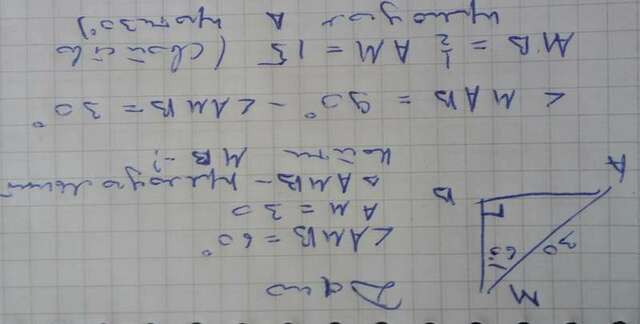 Дано
∠AMB = 60°
AM = 30
△AMB – прямоугольный
Найти MB – ?
∠MAB = 90° – ∠AMB = 30°
MB = 1/2 AM = 15 (свойство
прямоуг. △ против 30°)
M
60
30
B
A